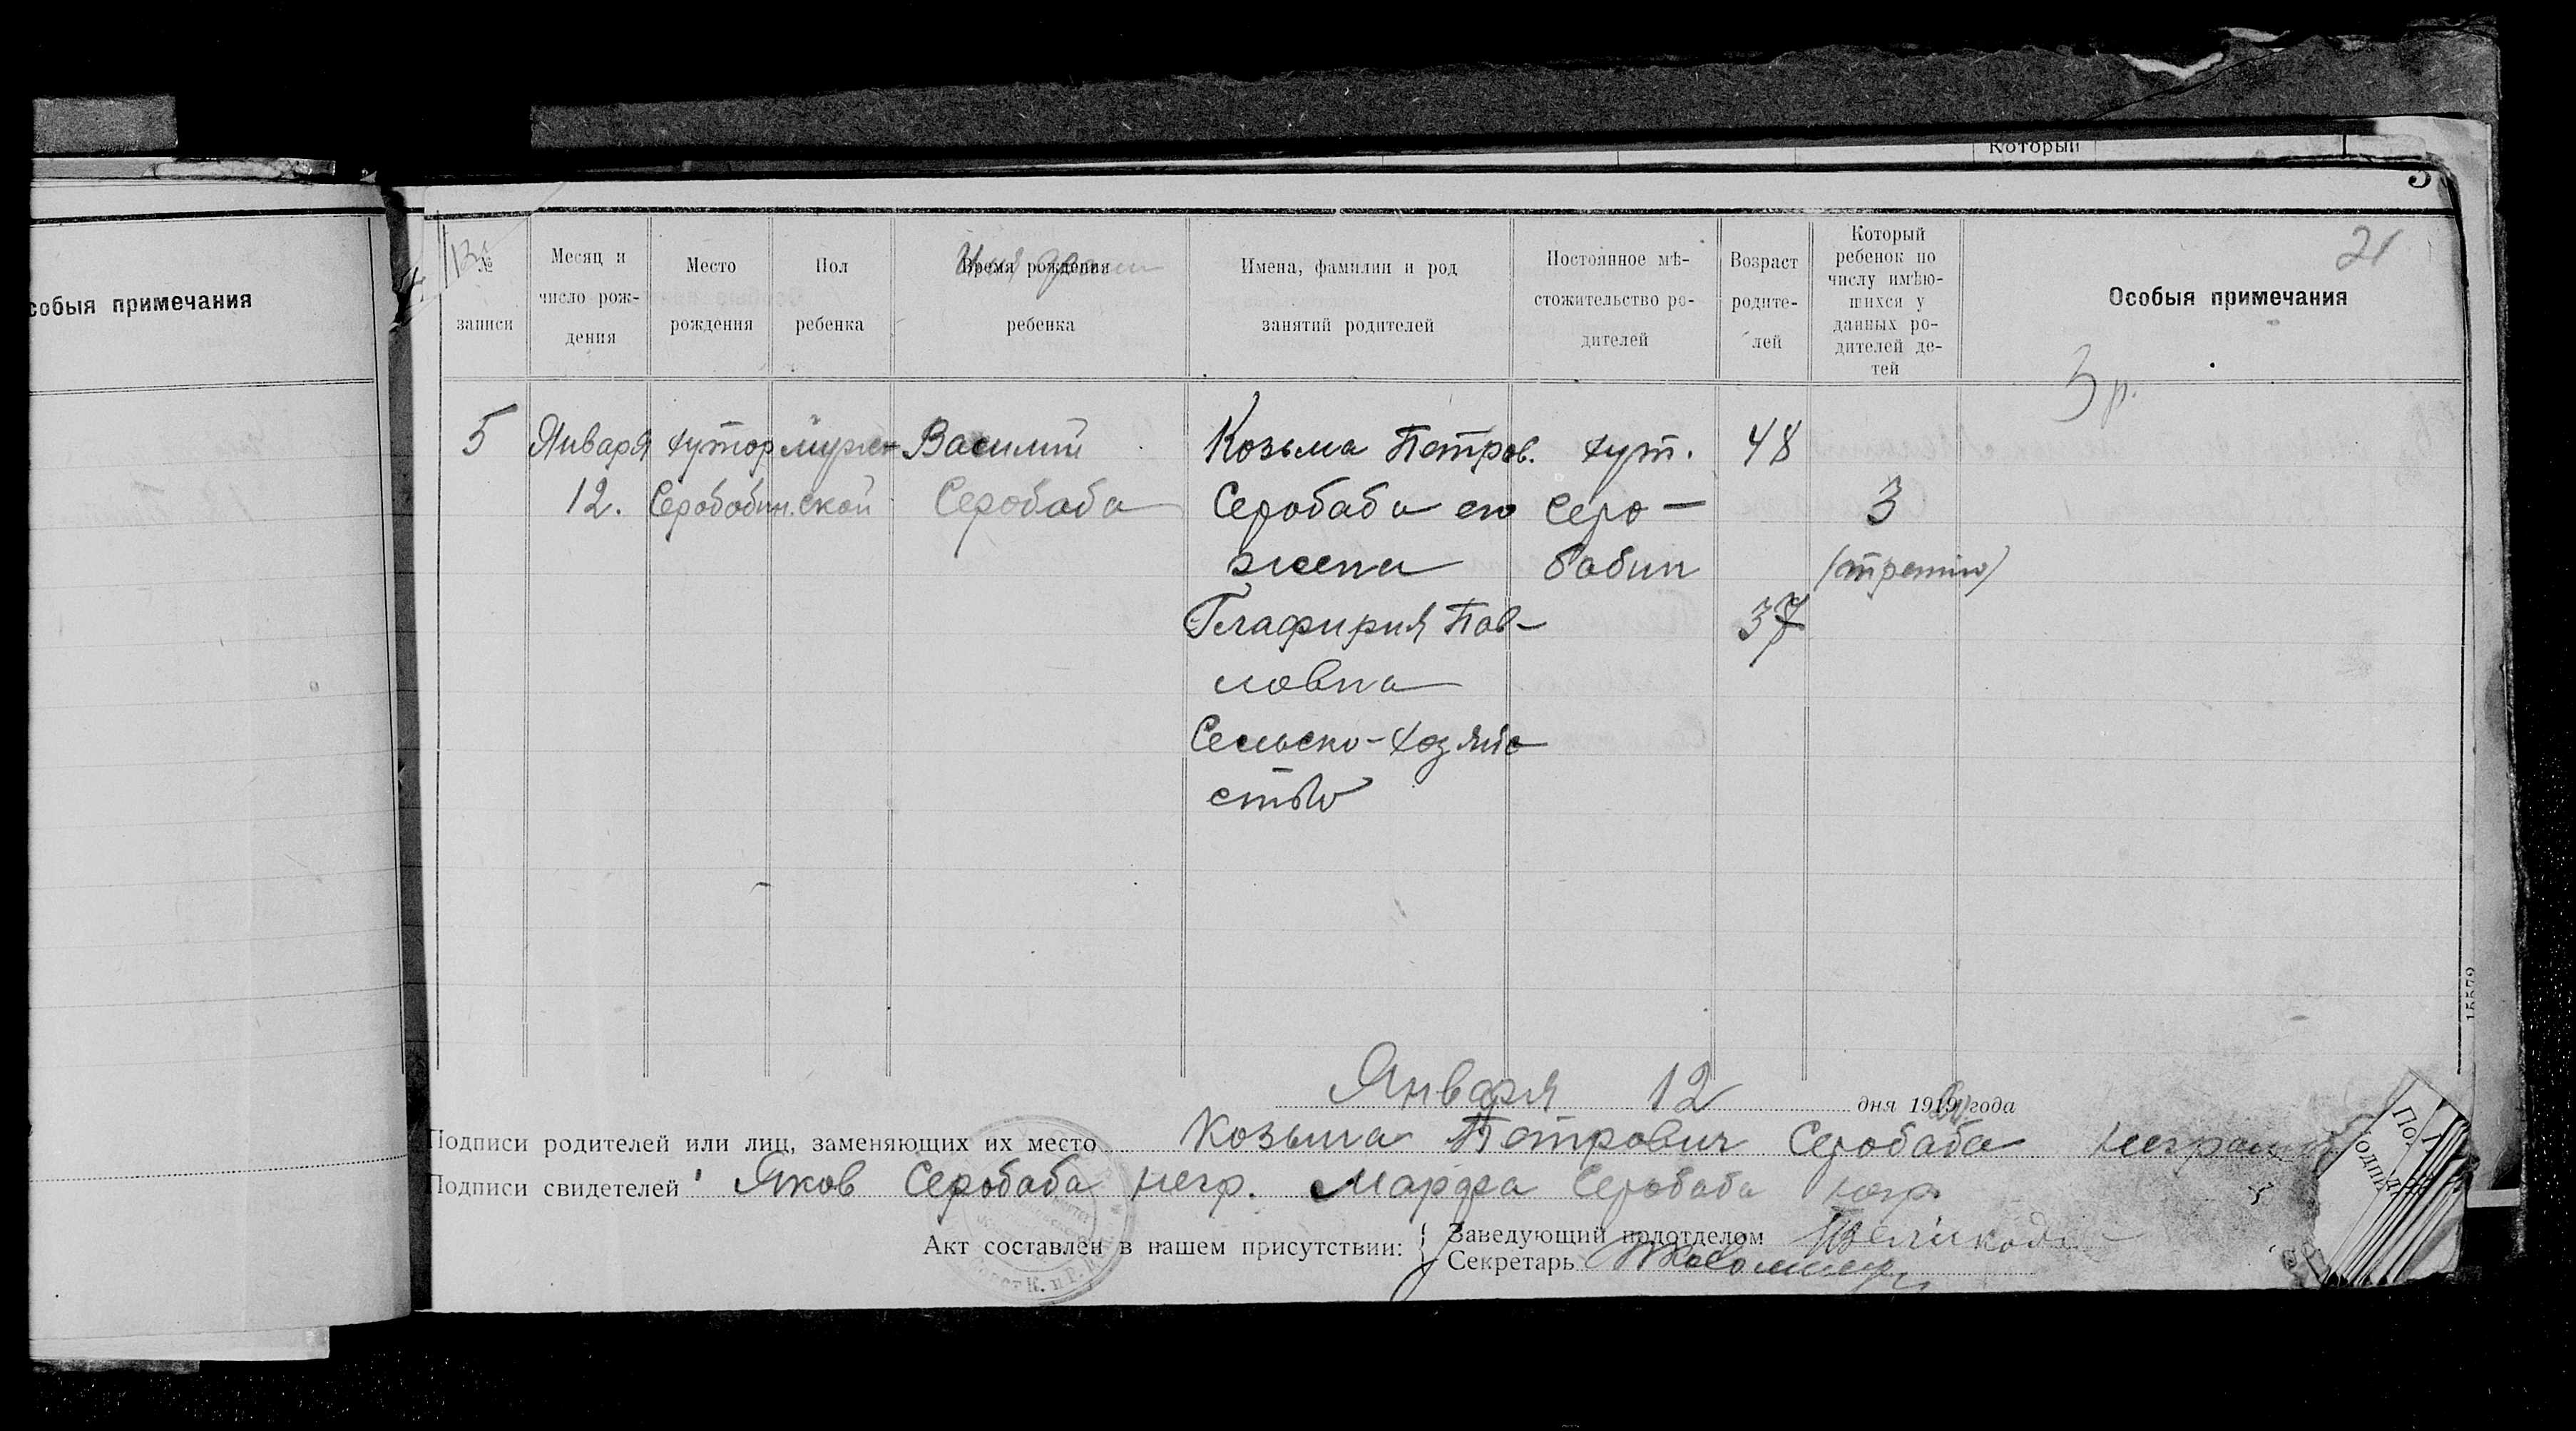 Который
5
собыя примечания
№ записи
Месяц и число рож-дения
Место рождения
Пол ребенка
Время рождения ребенка
Имена, фамилии и род занятий родителей
Постоянное мѣ-стожительство ро-дителей
Возраст родите-лей
Который ребенок по числу имѣю-щихся у данных ро-дителей де-тей
Особыя примечания
21
3 р.
5 Января хутор мужс- Василий Козьма Петров. хут. 48
12. Серобобин. ской Серобаба Серобаба его Серо- 3
жена бабин (третий)
Глафирия Пав- 37
ловна
Сельско-хозяйс
ство
15579
Января 12 дня 1919 года
Подписи родителей или лиц, заменяющих их место Козьма Петрович Серобаба неграмот
Подписи свидетелей Яков Серобаба негр. Марфа Серобаба негр.
Акт составлен в нашем присутствии: Заведующий подотделом
Секретарь